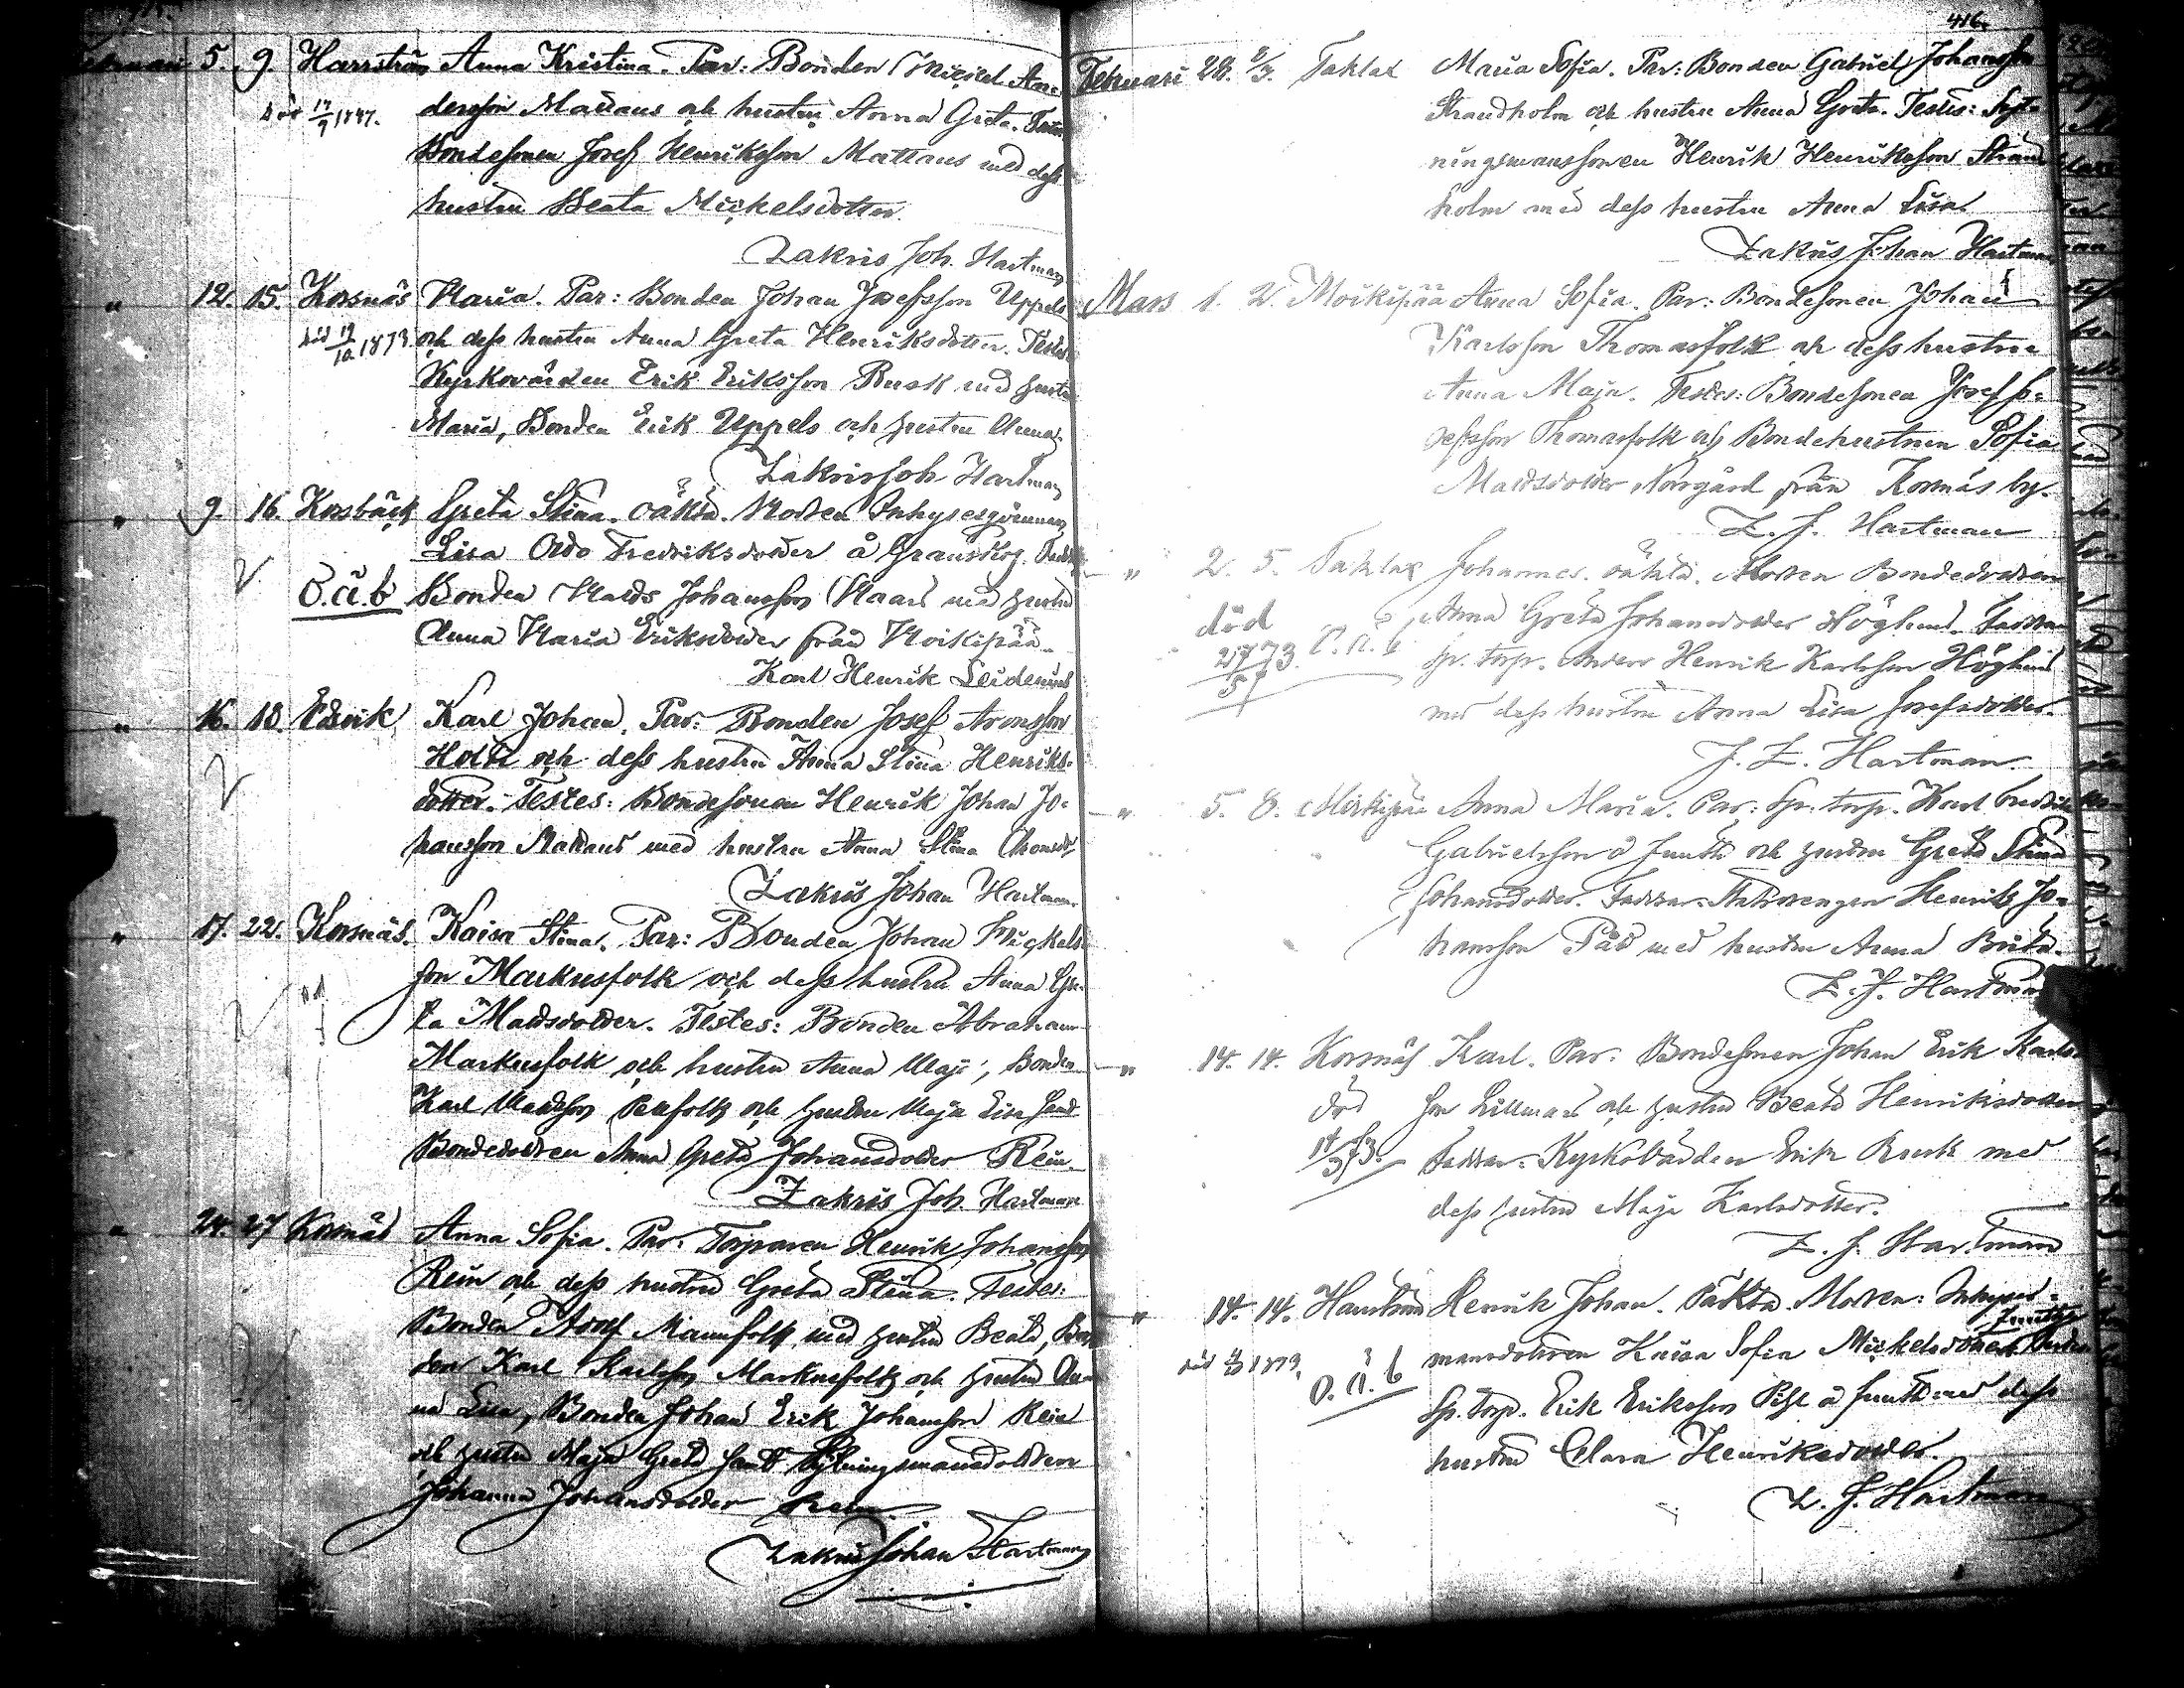 5. 9. Harrström Anna Kristina. Par: Bonden Mickel An-
död 17/9 1887. dersson Mattans och hustru Anna Greta.
Bondesonen Josef Henriksson Mattans med dess
hustru Beata Mickelsdotter.
Zakris Joh. Hartman
" 12. 15. Korsnäs Maria. Par: Bonden Johan Josefsson Uppels
död 19/10 1873 och dess hustru Anna Greta Henriksdotter. Testes
Kyrkovärden Erik Eriksson Rusk med hustru
Maria, Bonden Erik Uppels och hustru Anna.
Zakris Joh Hartman
" 9. 16. Korsbäck Greta Stina. oäkta. Modren Inhysesqvinnan
Lisa Fredriksdotter å
O.ä.b Bonden Matts Johansson med hustru
Anna Maria Eriksdotter från Moikipää.
Karl Henrik
" 16. 18. Edsvik Karl Johan. Par: Bonden Josef Aronsson
Holtti och dess hustru Anna Stina Henriks-
dotter. Testes: Bondesonen Henrik Johan Jo-
hansson Mattans med hustru Anna Stina
Zakris Johan Hartman.
" 17. 22. Korsnäs. Kaisa Stina. Par: Bonden Johan Mickels-
son Markusfolk och dess hustru Anna Gre-
ta Mattsdotter. Testes: Bonden Abraham
Markusfolk och hustru Anna Maja, Bonden
Karl Mattsson och hustru Maja Lisa samt
Bondedottren Anna Greta Johansdotter Rein.
Zakris Joh. Hartman
" 24. 27 Korsnäs Anna Sofia. Par: Torparen Henrik Johansson
Rein och dess hustru Greta Stina. Testes:
Bonden Adolf Mannfolk med hustru Beata, Bon-
den Karl Karlsson Markusfolk och hustru An-
na Lisa, Bonden Johan Erik Johansson Rein
och hustru Maja Greta samt Sytningsmansdottren
Johanna Johansdotter Rein.
Zakris Johan Hartman
416.
Februari 28. 2/3. Taklax Maria Sofia. Par: Bonden Gabriel Johansson
Strandholm och hustru Anna Greta. Testes: Syt-
ningsmanssonen Henrik Henriksson Strand-
holm med dess hustru Anna Lisa.
Zakris Johan Hartman
Mars 1. 2. Moikipää Anna Sofia. Par: Bondesonen Johan
Karlsson Thomasfolk och dess hustru
Anna Maja. Testes: Bondesonen Josef Jo-
sefsson Thomasfolk och Bondehustrun Sofia
Mattsdotter Norrgård från Korsnäs by.
Z. J. Hartman
" 2. 5. Taklax Johannes. oäkta. Modren Bondedottren
död Anna Greta Johansdotter Höglund. Faddrar
27/5 73. O.ä.b Sp. torp. Henrik Karlsson Höglund
med dess hustru Anna Lisa Josefsdotter.
J. Z. Hartman.
" 5. 8. Moikipää Anna Maria. Par: Sp. torp. Karl Fredrik
Gabrielsson å Junth och hustru Greta Stina
Johansdotter. Faddrar: Henrik Jo-
hansson med hustru Anna Brita.
Z. J. Hartman
" 14. 14. Korsnäs Karl. Par: Bondesonen Johan Erik Karls-
död son och hustru Beata Henriksdotter
Faddrar: Kyrkovärden Erik Rusk med
dess hustru Maja Karlsdotter.
Z. J. Hartman
" 14. 14. Harrström Henrik Johan. Oäkta. Modren: Inhyses-
mansdottren Kaisa Sofia Mickelsdotter Junth.
O.ä.b Sp. torp. Erik Eriksson å Junth med dess
hustru Clara Henriksdotter.
Z. J. Hartman